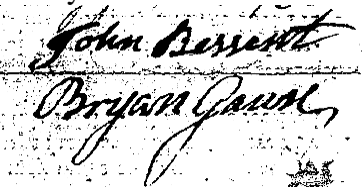 John Bessent
Bryan Gause